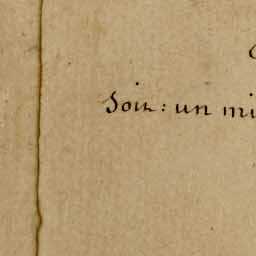 Soin: un mi